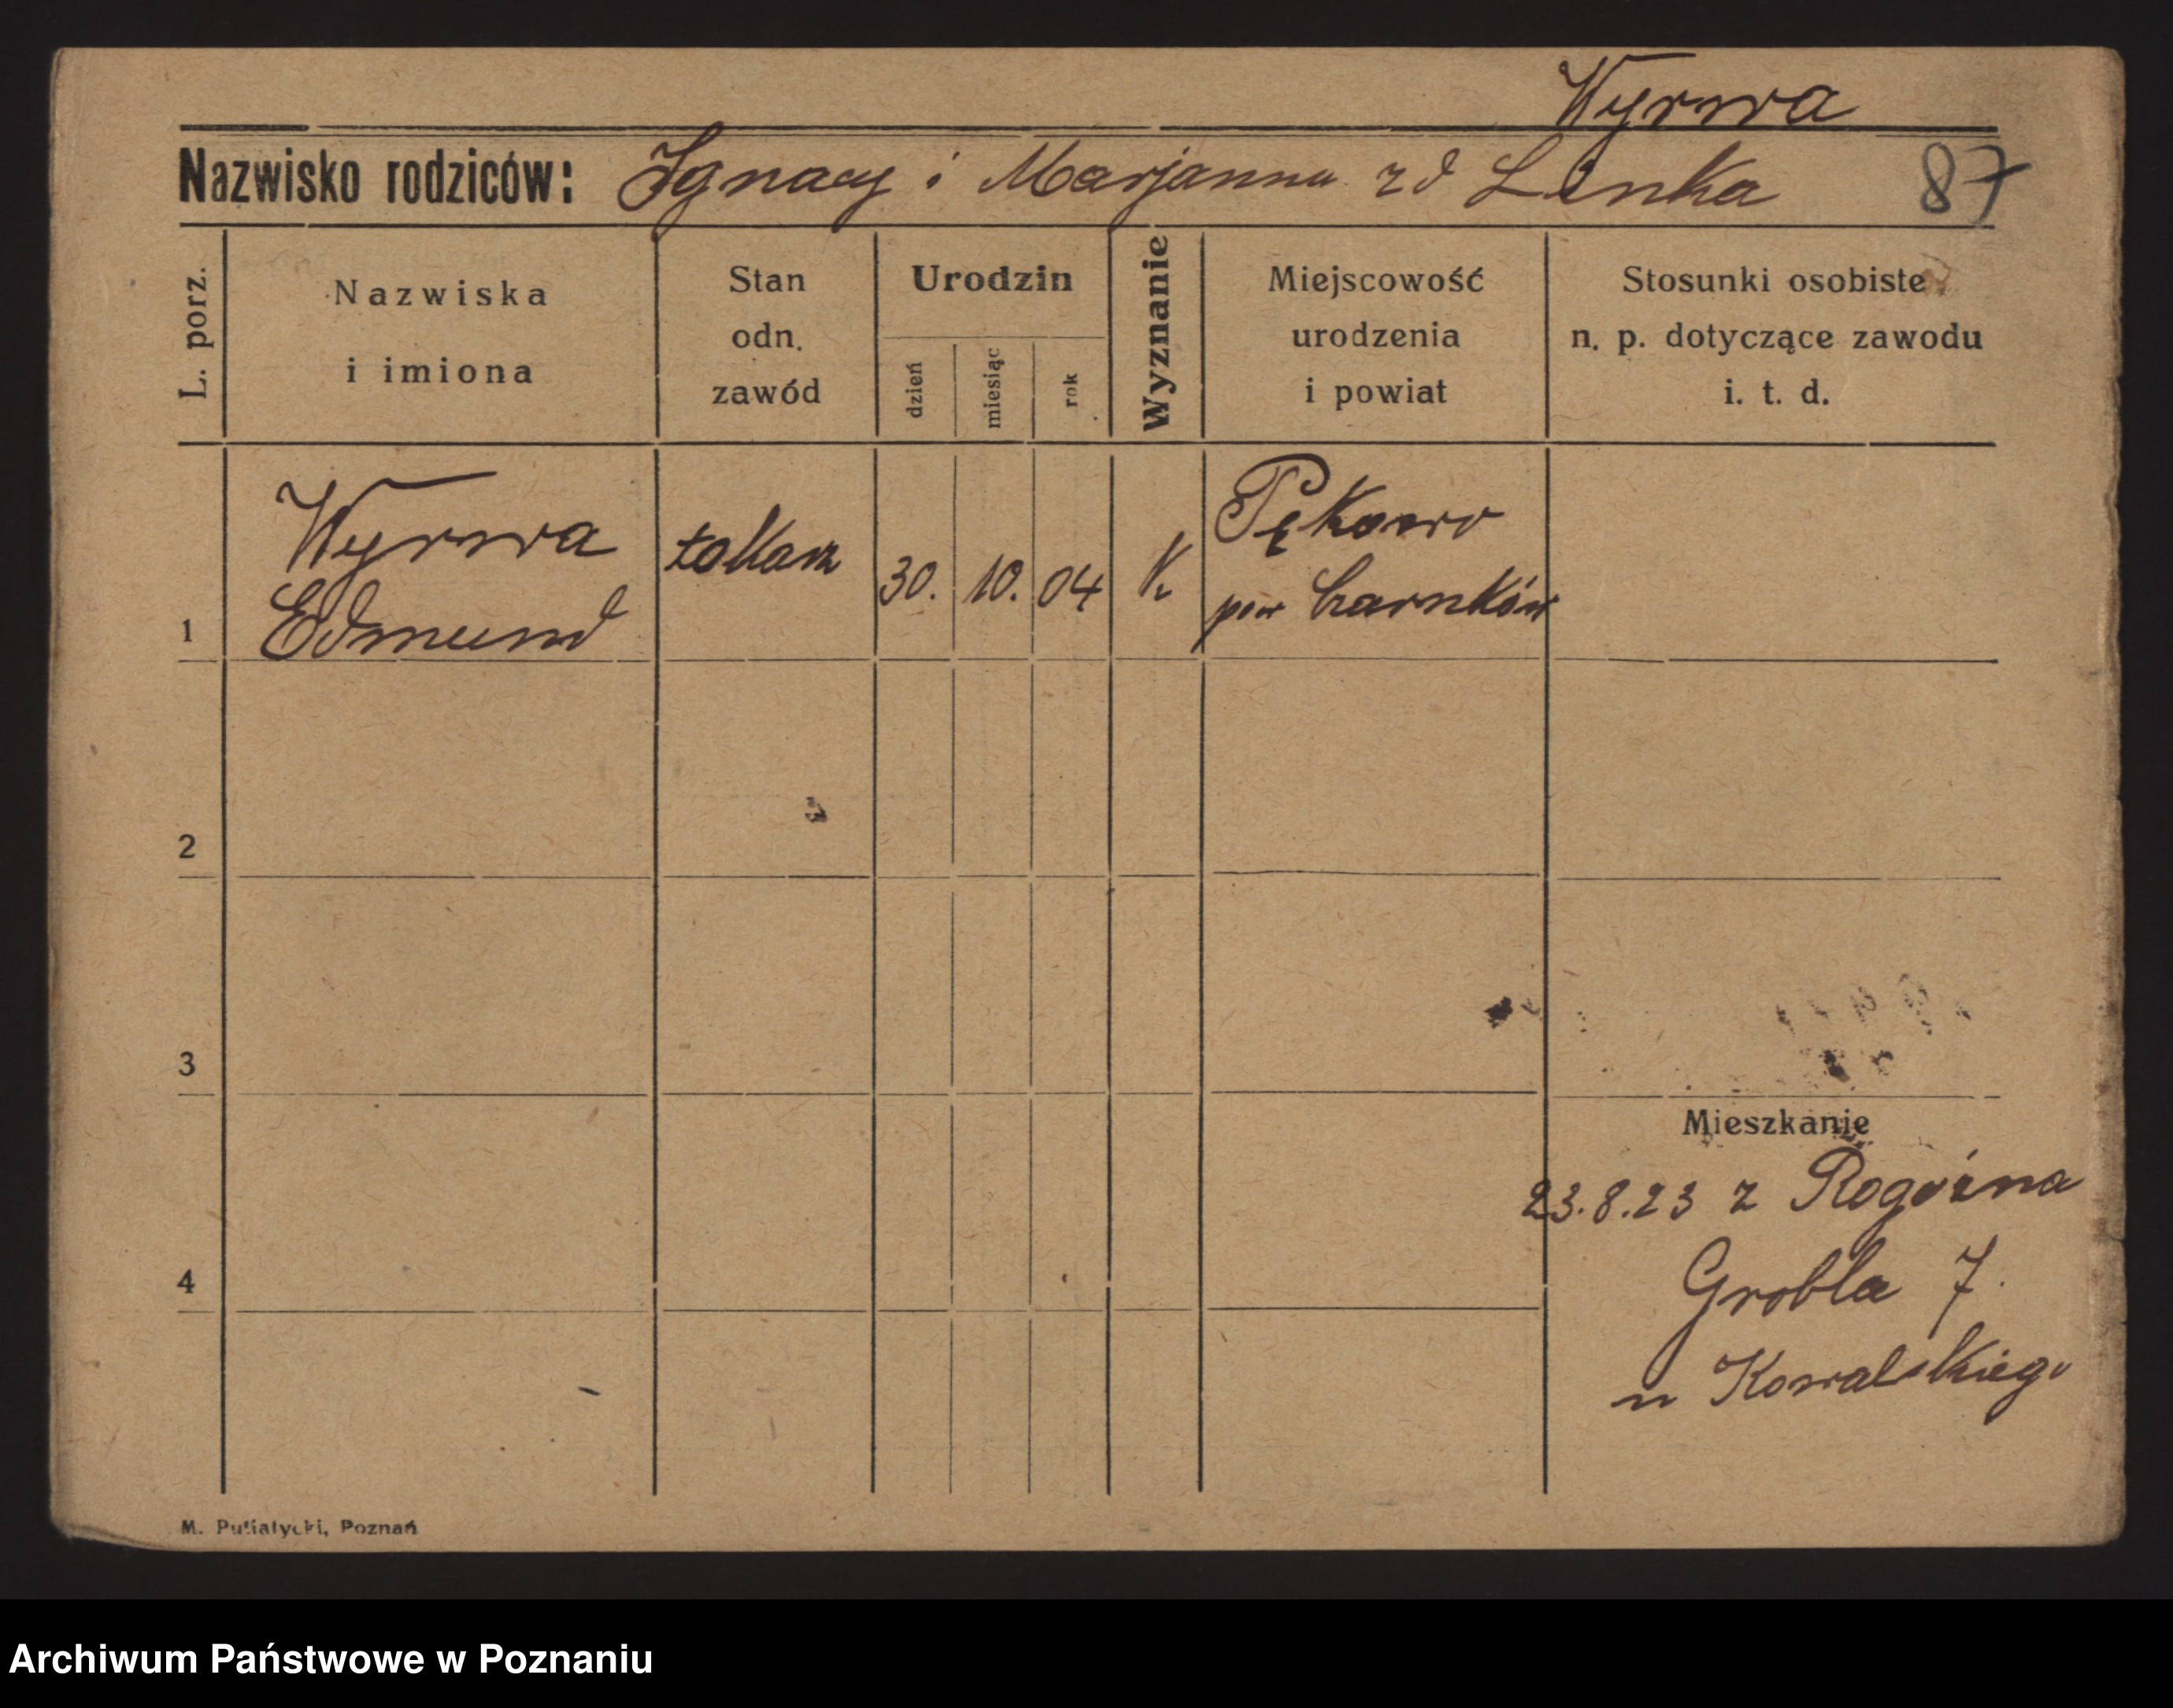 Wyrwa
Nazwisko rodziców: Ignacy i Marjanna zd Linka 87
L. porz.
Nazwiska
i imiona
Stan
odn.
zawód
Urodzin
dzień
miesiąc
rok
Wyznanie
Miejscowość
urodzenia
i powiat
Stosunki osobiste
n. p. dotyczące zawodu
i. t. d.
1
Wyrwa
Edmund
tokarz
30. 10. 04
K.
Pękowo
pow Czarnków
2
3
Mieszkanie
23.8.23 z Rogoźna
4
Grobla 7.
u Kowalskiego
M. Putiatycki, Poznań
Archiwum Państwowe w Poznaniu